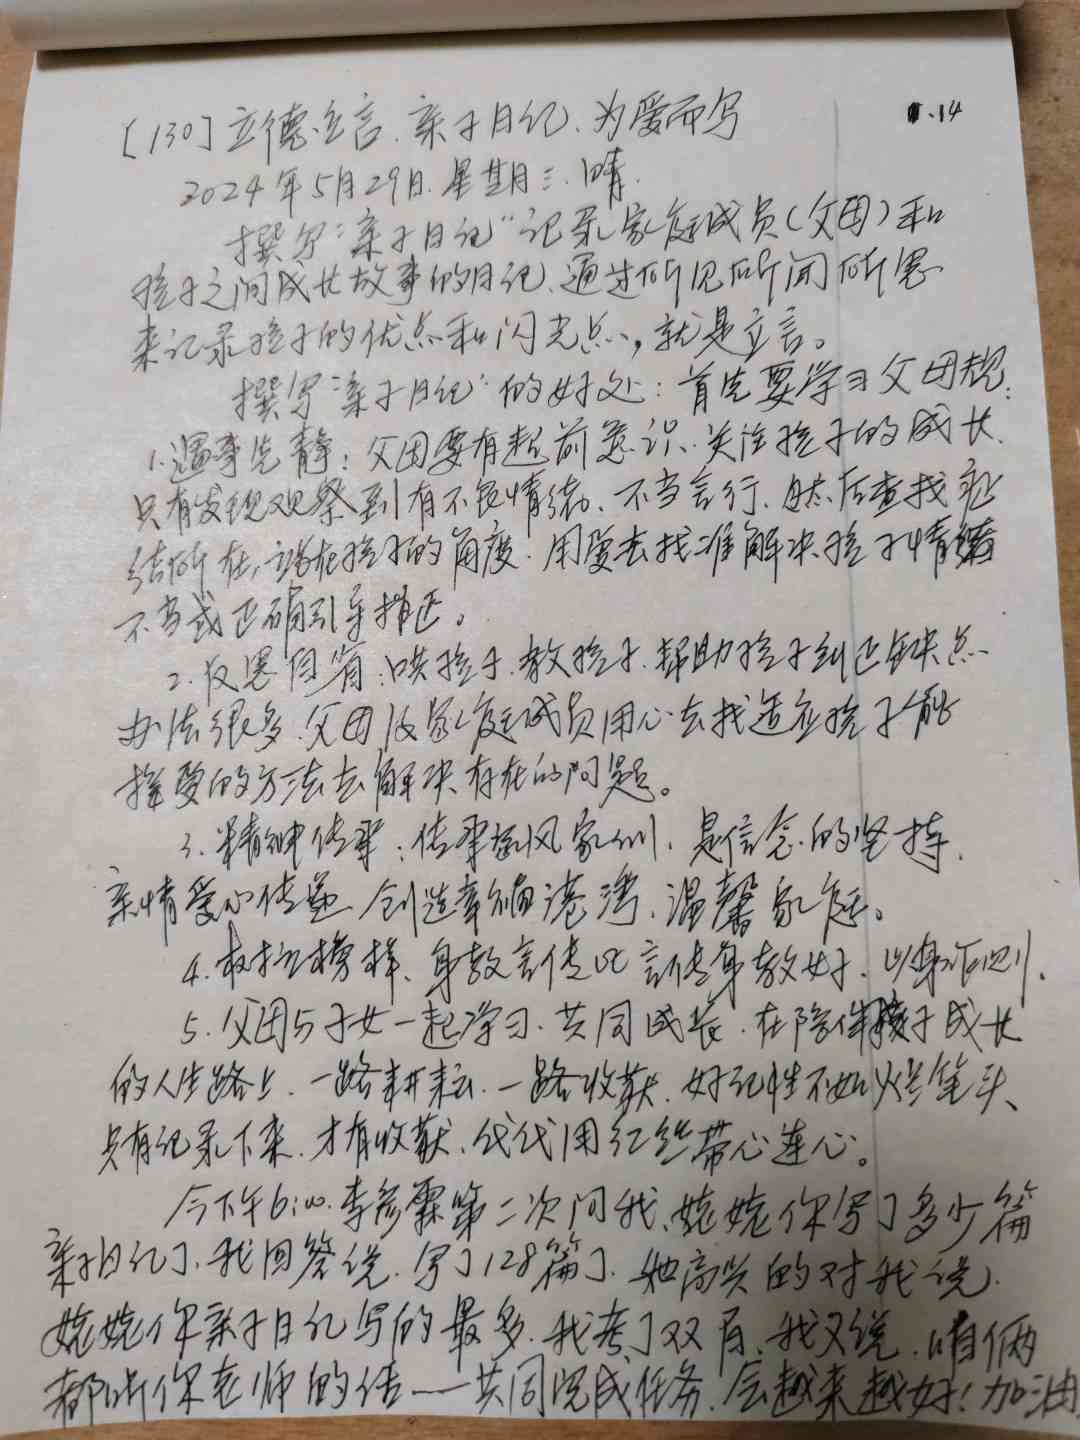 [130]立德立言、亲子日记、为爱而写 14
2024年5月29日.星期三.晴.
撰写“亲子日记”记录家庭成员(父母)和
孩子之间成长故事的日记、通过所见所闻所思
来记录孩子的优点和闪光点,就是立言。
撰写“亲子日记”的好处:首先要学习父母规:
1.遇事先静:父母要有超前意识、关注孩子的成长、
只有发现观察到有不良情绪、不当言行、然后查找症
结所在,站在孩子的角度、用爱去找准解决孩子情绪
不当或正确引导推正。
2.反思自省:哄孩子、教孩子、帮助孩子纠正缺点
办法很多、父母及家庭成员用心去找适应孩子能
接受的方法去解决存在的问题。
3.精神传承:传承家风家训、是信念的坚持、
亲情爱心传递、创造幸福港湾、温馨家庭。
4.树立榜样、身教言传比言传身教好、以身作则、
5.父母与子女一起学习、共同成长、在陪伴孩子成长
的人生路上、一路耕耘、一路收获、好记性不如烂笔头、
只有记录下来、才有收获、代代用红丝带心连心。
今下午6:00.李彦霖第二次问我、姥姥你写了多少篇
亲子日记了、我回答说、写了128篇了、她高兴的对我说、
姥姥你亲子日记写的最多、我考了双百、我又说、咱俩
都听你老师的话——共同完成任务、会越来越好!加油